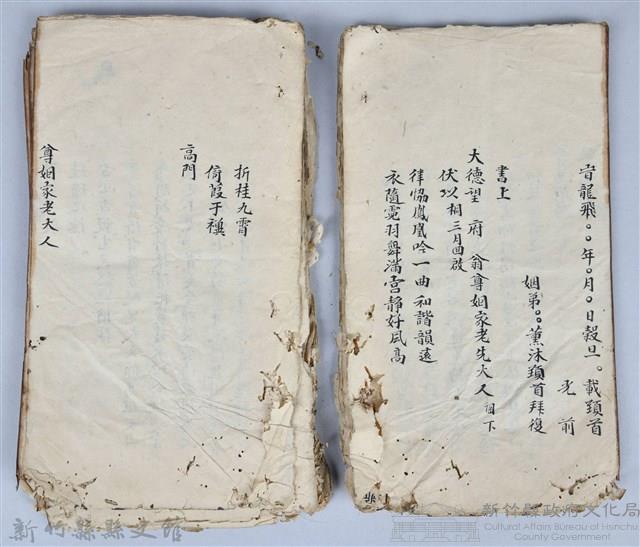 旹龍飛。。年。月。日榖旦。載頴首
光前
姻弟。。薰沐頴首拜復
書上
大德望 府 翁尊姻家老先大人 閣下
伏以桐三月曲啟
律恊鳳凰吟一曲和諧韻遠
衣隨霓羽舞滿宮靜好風高
折桂九霄
倚葭于
高門
尊姻家老大人
新竹縣縣史館
新竹縣政府文化局
Cultural Affairs Bureau of Hsinchu
County Government